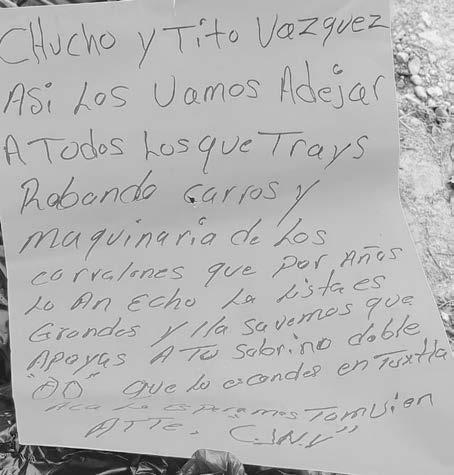 CHucho y Tito Vazquez
Asi Los Vamos Adejar
A Todos Los que Trays
Robando carros y
maquinaria de Los
corralones que por Años
Lo An Echo La Lista es
Grandes y lla savemos que
Apoyas A Tu Sobrino doble
"OO" que lo escondes en Tuxtla
Aca Lo Esperamos Tomvien
ATTE. C.J.N.V"